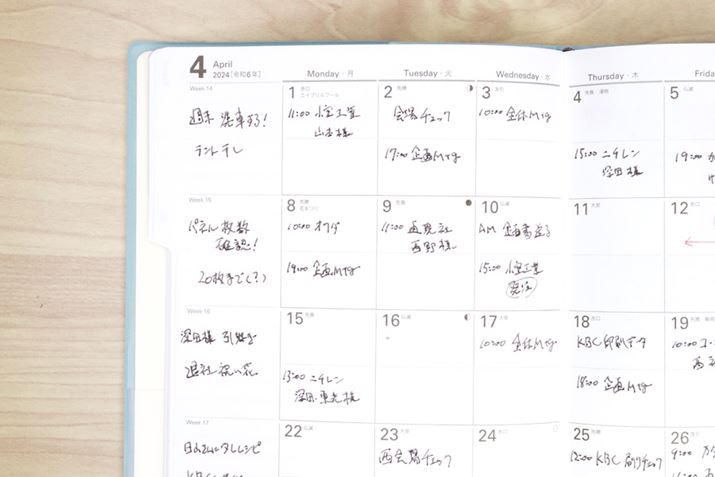 4 April
2024[令和6年]
Monday・月
Tuesday・火
Wednesday・水
Thursday・木
Frida
Week 14
週末 洗車する!
テント干し
1 赤口
エイプリルフール
11:00 小宝工業
山本様
2 先勝
会場チェック
17:00 企画Mtg
3 友引
10:00 全体Mtg
4 先負
15:00 ニチレン
深田様
5
19:00
Week 15
パネル枚数
確認!
20枚まで(?)
8 先勝
花まつり
10:00 オフダ
19:00 企画Mtg
9 先負
11:00
西野様
10 仏滅
AM 企画書送る
15:00 小宝工業
発注
11 大安
12
Week 16
深田様 引継ぎ
退社祝い花
15 先負
13:00 ニチレン
深田・重光様
16 仏滅
17 大安
10:00 全体Mtg
18 赤口
KBC 印刷データ
18:00 企画Mtg
19 先勝
10:00
Week 17
レシピ
22 仏滅
23 大安
西会場チェック
24 赤口
25 先勝
12:00 KBC 刷りチェック
26
9:00
11:00